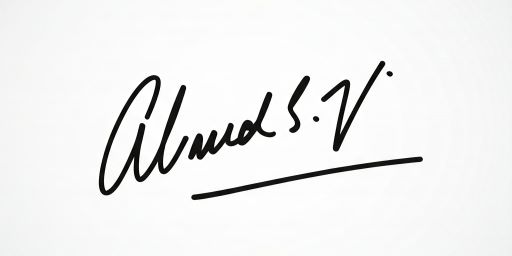 Ahmed S. V.